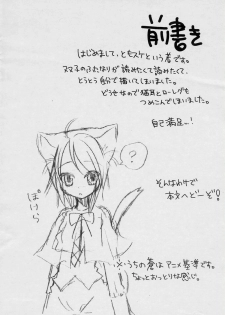 前書き
はじめまして、ともスケという者です。
双子のふたなりが読みたくて読みたくて、
とうとう自分で描いてしまいました。
どうせなので猫耳とローレグも
つめこんでしまいました。
自己満足ー!
?
そんなわけで
本文へどーぞ!
ぽけら
×うちの蒼はアニメ基準です。
ちょっとおっとりな感じ。